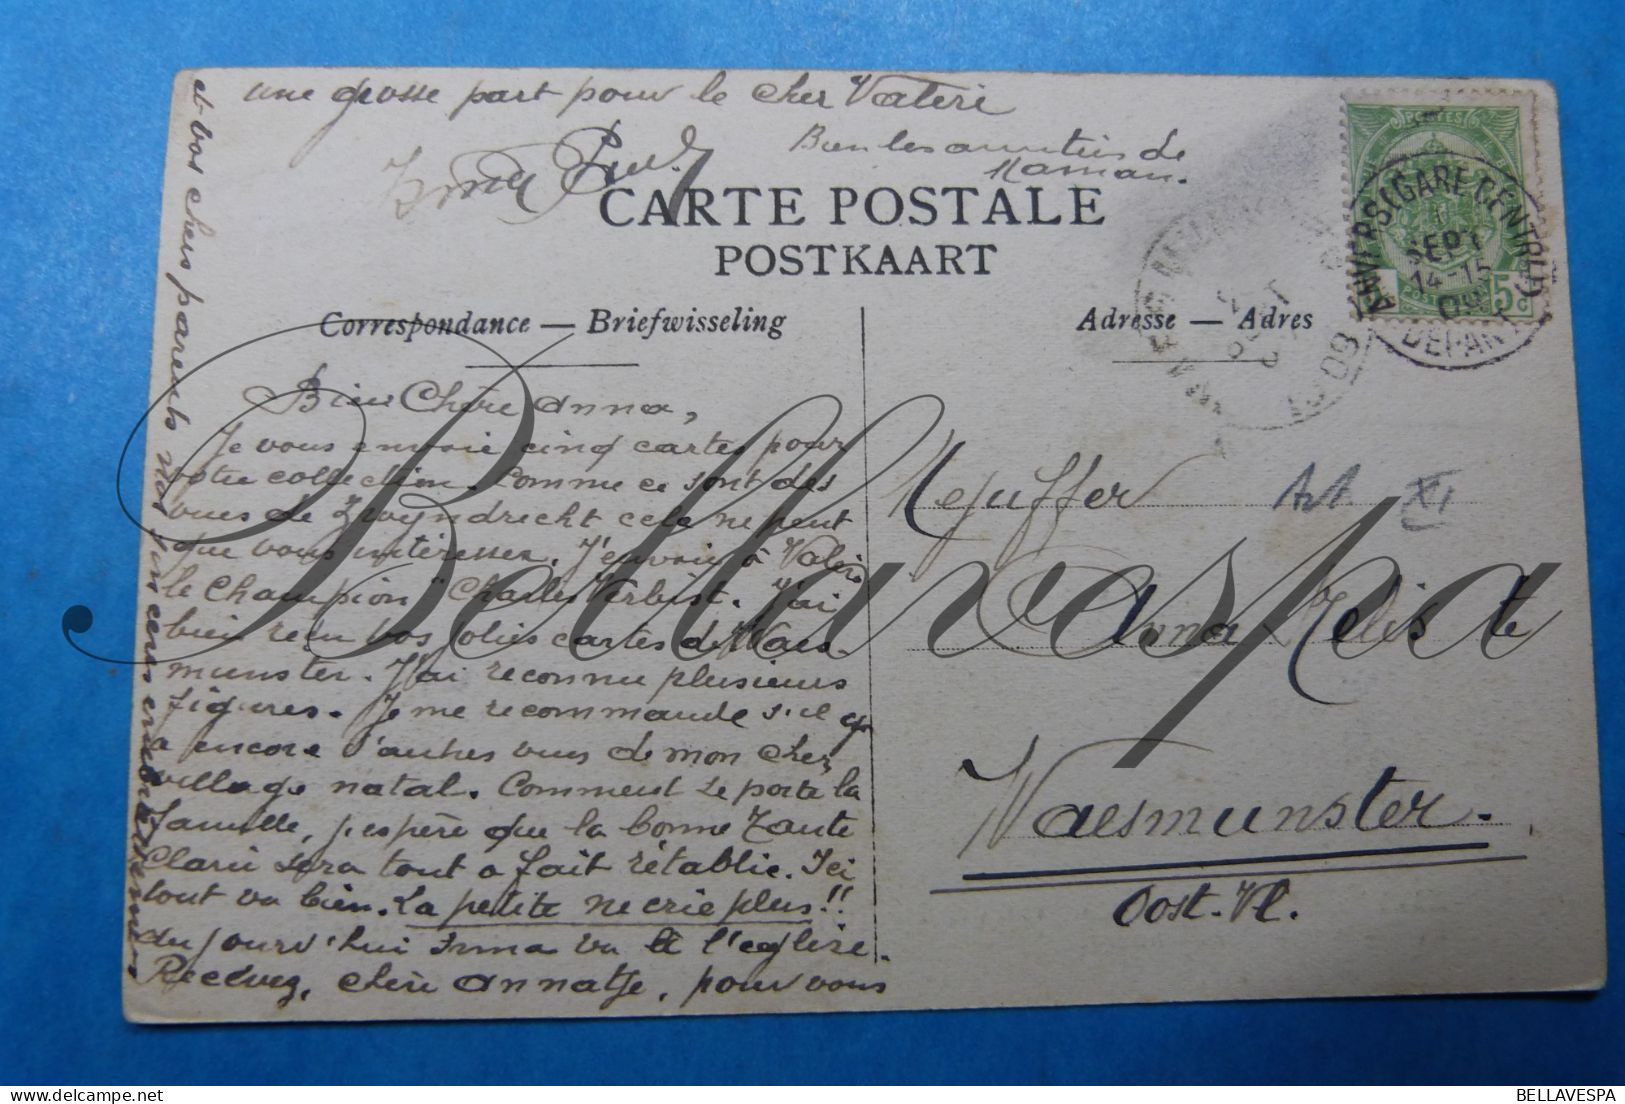 une grosse part pour le cher Valère
Bien les amitiés de
Maman.
CARTE POSTALE
POSTKAART
Correspondance — Briefwisseling
Adresse — Adres
ANVERS (GARE CENTRALE)
1
SEPT
14-15
09
DEPART
POSTES
5 c
Bien Chère Anna,
Je vous envoie cinq cartes pour
votre collection. Comme ce sont des
vues de Zwyndrecht cela ne peut
que vous intéresser. J'envoie à Valère
le Champion "Charles Verbist. J'ai
bien reçu vos jolies cartes de Waes-
munster. J'ai reconnu plusieurs
figures. Je me recommande s'il y
a encore d'autres vues de mon cher
village natal. Comment se porte la
famille, j'espère que la bonne Tante
Clarie sera tout a fait rétablie. Ici
tout va bien. La petite ne crie plus!!
du jourd'hui Irma va à l'eglise.
Recevez, chère Annatje, pour vous
et vos chers parents nos sincères
Mejuffer
Anna Melis
Waesmunster.
Oost. Vl.
Art. XI
Bellavespa
BELLAVESPA